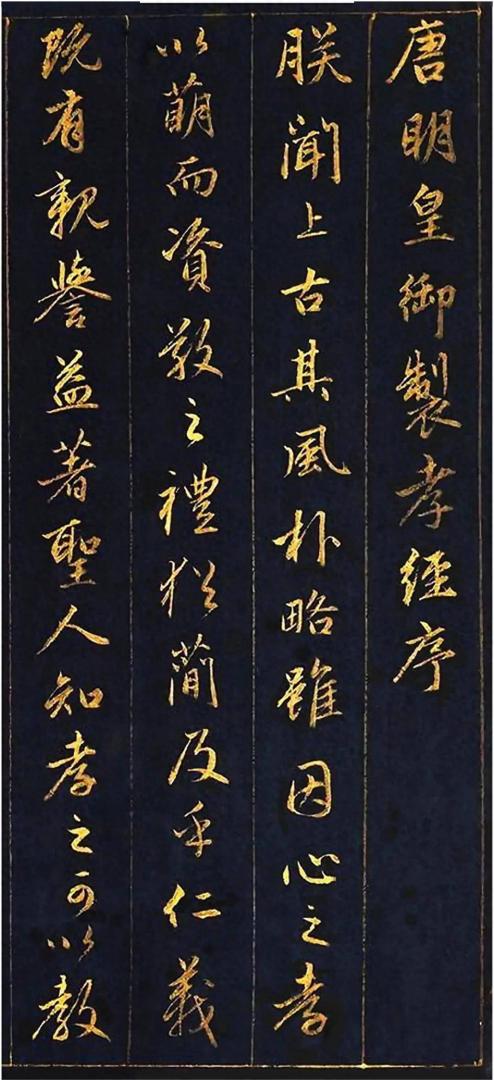 唐明皇御製孝經序
朕聞上古其風朴略雖因心之孝
以萌而資敬之禮猶簡及乎仁義
既有親譽益著聖人知孝之可以教